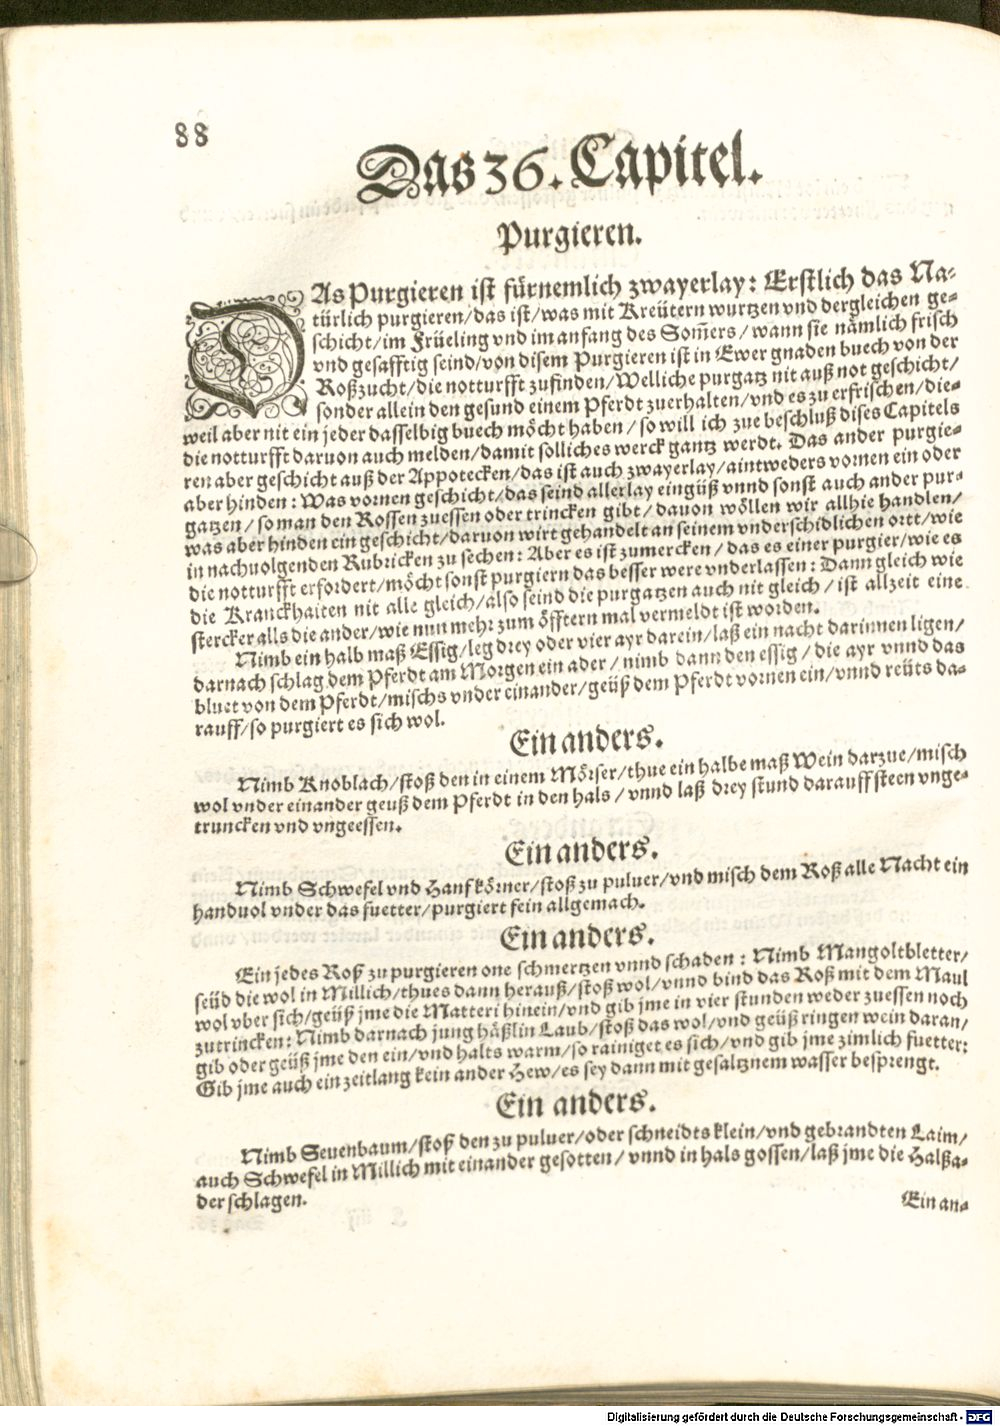 88
Das 36. Capitel.
Purgieren.
DAs Purgieren ist fürnemlich zwayerlay: Erstlich das Na-
türlich purgieren/das ist/was mit Kreütern wurtzen vnd dergleichen ge-
schicht/im Früeling vnd im anfang des Som̄ers/wann sie nämlich frisch
vnd gesafftig seind/von disem Purgieren ist in Ewer gnaden buech von der
Roßzucht/die notturfft zufinden/Welliche purgatz nit auß not geschicht/
sonder allein den gesund einem Pferdt zuerhalten/vnd es zu erfrischen/die-
weil aber nit ein jeder dasselbig buech möcht haben/so will ich zue beschluß dises Capitels
die notturfft daruon auch melden/damit solliches werck gantz werdt. Das ander purgie-
ren aber geschicht auß der Appotecken/das ist auch zwayerlay/aintweders vornen ein oder
aber hinden: Was vornen geschicht/das seind allerlay eingüß vnnd sonst auch ander pur-
gatzen/so man den Rossen zuessen oder trincken gibt/dauon wöllen wir allhie handlen/
was aber hinden ein geschicht/daruon wirt gehandelt an seinem vnderschidlichen ortt/wie
in nachuolgenden Rubricken zu sechen: Aber es ist zumercken/das es einer purgier/wie es
die notturfft erfordert/möcht sonst purgiern das besser were vnderlassen: Dann gleich wie
die Kranckhaiten nit alle gleich/also seind die purgatzen auch nit gleich/ist allzeit eine
stercker alls die ander/wie nun mehr zum öfftern mal vermeldt ist worden.
Nimb ein halb maß Essig/leg drey oder vier ayr darein/laß ein nacht darinnen ligen/
darnach schlag dem Pferdt am Morgen ein ader/nimb dann den essig/die ayr vnnd das
bluet von dem Pferdt/mischs vnder einander/geüß dem Pferdt vornen ein/vnnd reüts da-
rauff/so purgiert es sich wol.
Ein anders.
Nimb Knoblach/stoß den in einem Mörser/thue ein halbe maß Wein darzue/misch
wol vnder einander geuß dem Pferdt in den hals/vnnd laß drey stund darauff steen vnge-
truncken vnd vngeessen.
Ein anders.
Nimb Schwefel vnd Hanfkörner/stoß zu puluer/vnd misch dem Roß alle Nacht ein
handuol vnder das fuetter/purgiert fein allgemach.
Ein anders.
Ein jedes Roß zu purgieren one schmertzen vnnd schaden: Nimb Mangoltbletter/
seüd die wol in Millich/thues dann herauß/stoß wol/vnnd bind das Roß mit dem Maul
wol vber sich/geüß jme die Matteri hinein/vnd gib jme in vier stunden weder zuessen noch
zutrincken: Nimb darnach jung häßlin Laub/stoß das wol/vnd geüß ringen wein daran/
gib oder geüß jme den ein/vnd halts warm/so rainiget es sich/vnd gib jme zimlich fuetter:
Gib jme auch ein zeitlang kein ander Hew/es sey dann mit gesaltznem wasser besprengt.
Ein anders.
Nimb Seuenbaum/stoß den zu puluer/oder schneidts klein/vnd gebrandten Laim/
auch Schwefel in Millich mit einander gesotten/vnnd in hals gossen/laß jme die Halßa-
der schlagen.
Ein an-
Digitalisierung gefördert durch die Deutsche Forschungsgemeinschaft - DFG